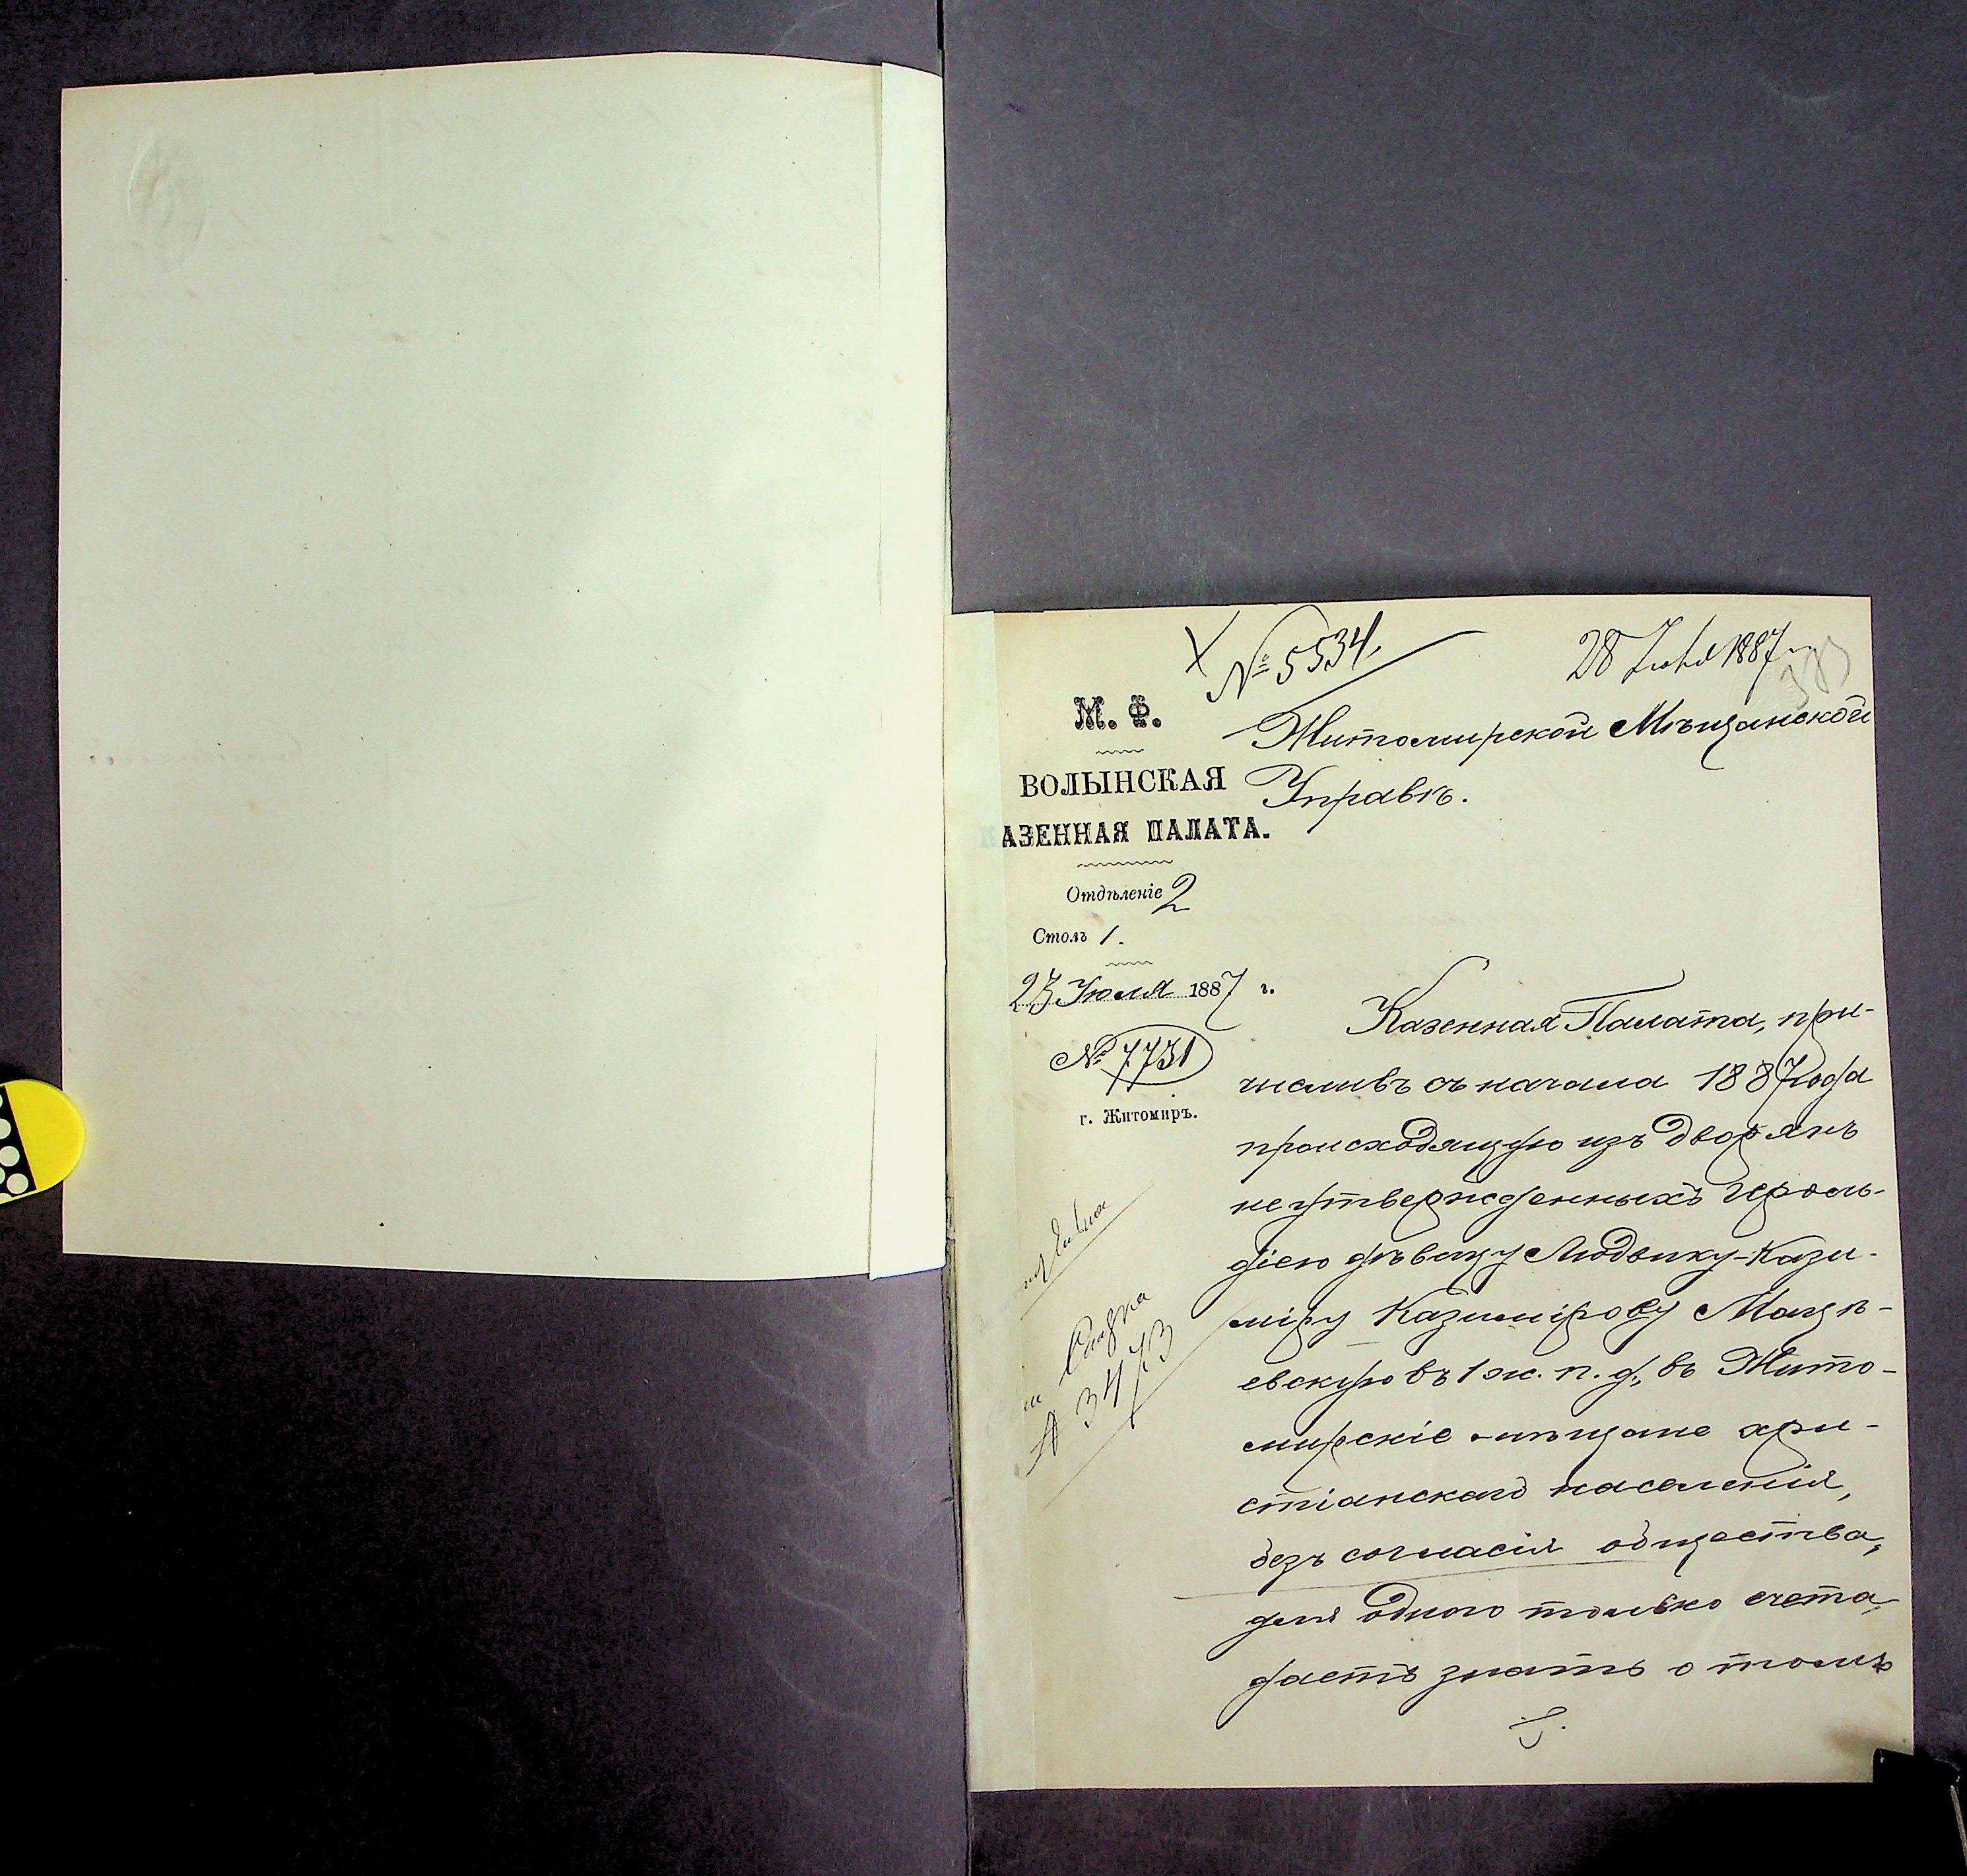 № 5534.
28 Июля 1887 г.
М. Ф.
ВОЛЫНСКАЯ
КАЗЕННАЯ ПАЛАТА.
Отдѣленіе 2
Столъ 1.
23 Іюля 1887 г.
№ 7731
г. Житомиръ.
Житомирской Мѣщанской
Управѣ.
Казенная Палата, при-
числивъ съ начала 1887 года
происходящую изъ дворянъ
неутвержденныхъ Героль-
діею дѣвицу Людвику-Кази-
міру Казимірову Мацѣ-
евскую въ 1 ж. п. д., въ Жито-
мирскіе мѣщане хри-
стіанскаго населенія,
безъ согласія общества,
для одного только счета,
даетъ знать о томъ